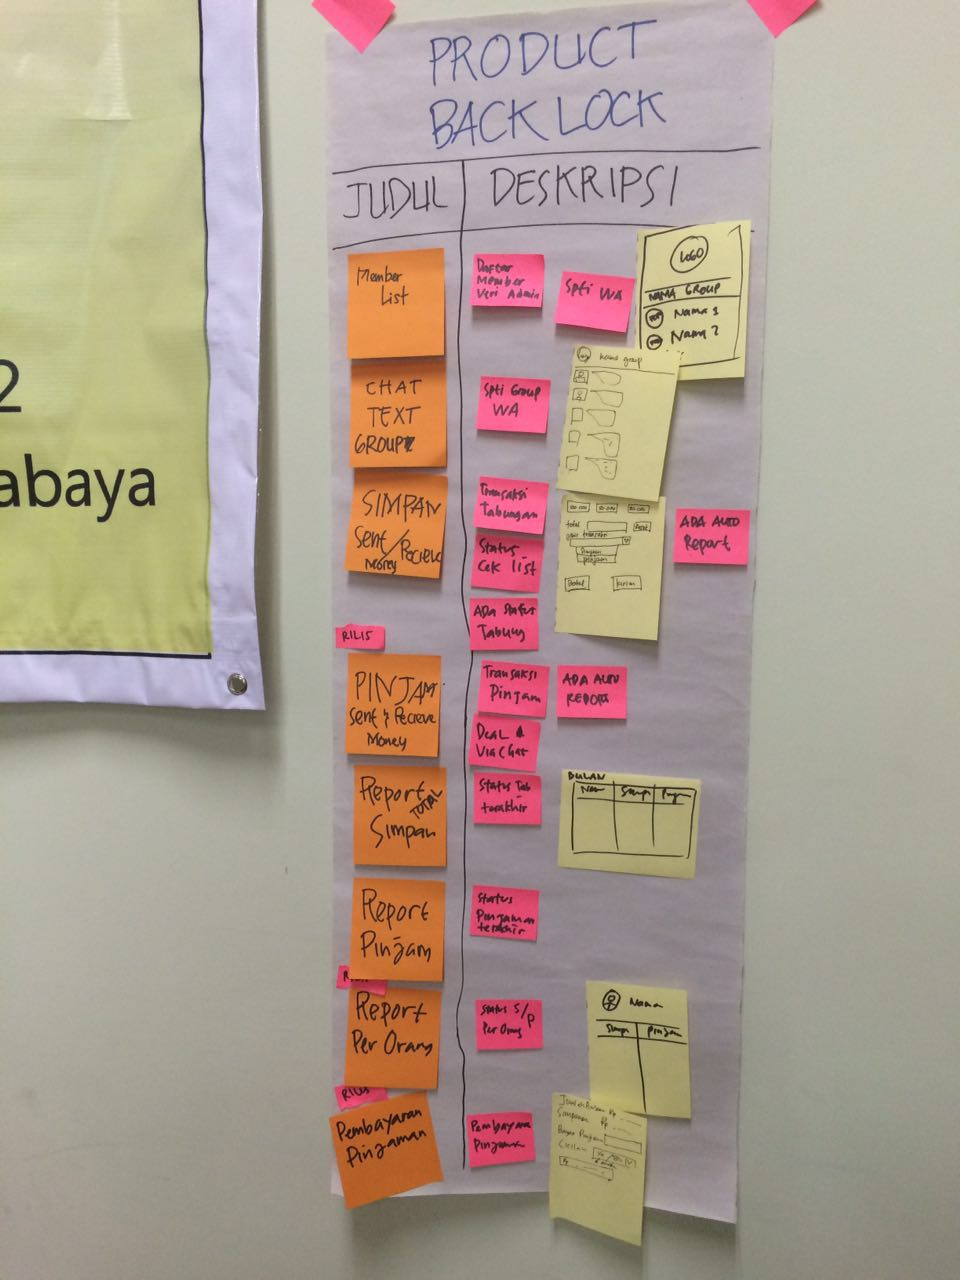 2
abaya
PRODUCT
BACK LOCK
JUDUL
DESKRIPSI
Member
List
Daftar
Member
Veri Admin
Spti WA
LOGO
NAMA GROUP
Nama 1
Nama 2
CHAT
TEXT
GROUP
Spti Group
WA
Nama group
SIMPAN
Sent/Recieve
Money
Transaksi
Tabungan
Status
Cek list
ADA Status
Tabung
total
ADA AUTO
Report
RILIS
PINJAM
Sent & Recieve
Money
Transaksi
Pinjam
ADA AUTO
REPORT
Deal
Via Chat
Report
TOTAL
Simpan
Status Tab
terakhir
BULAN
Report
Pinjam
Status
Pinjaman
terakhir
Report
Per Orang
Status S/P
Per Orang
Nama
Pinjam
RILIS
Pembayaran
Pinjaman
Pembayaran
Pinjaman
Simpanan Rp
Cicilan